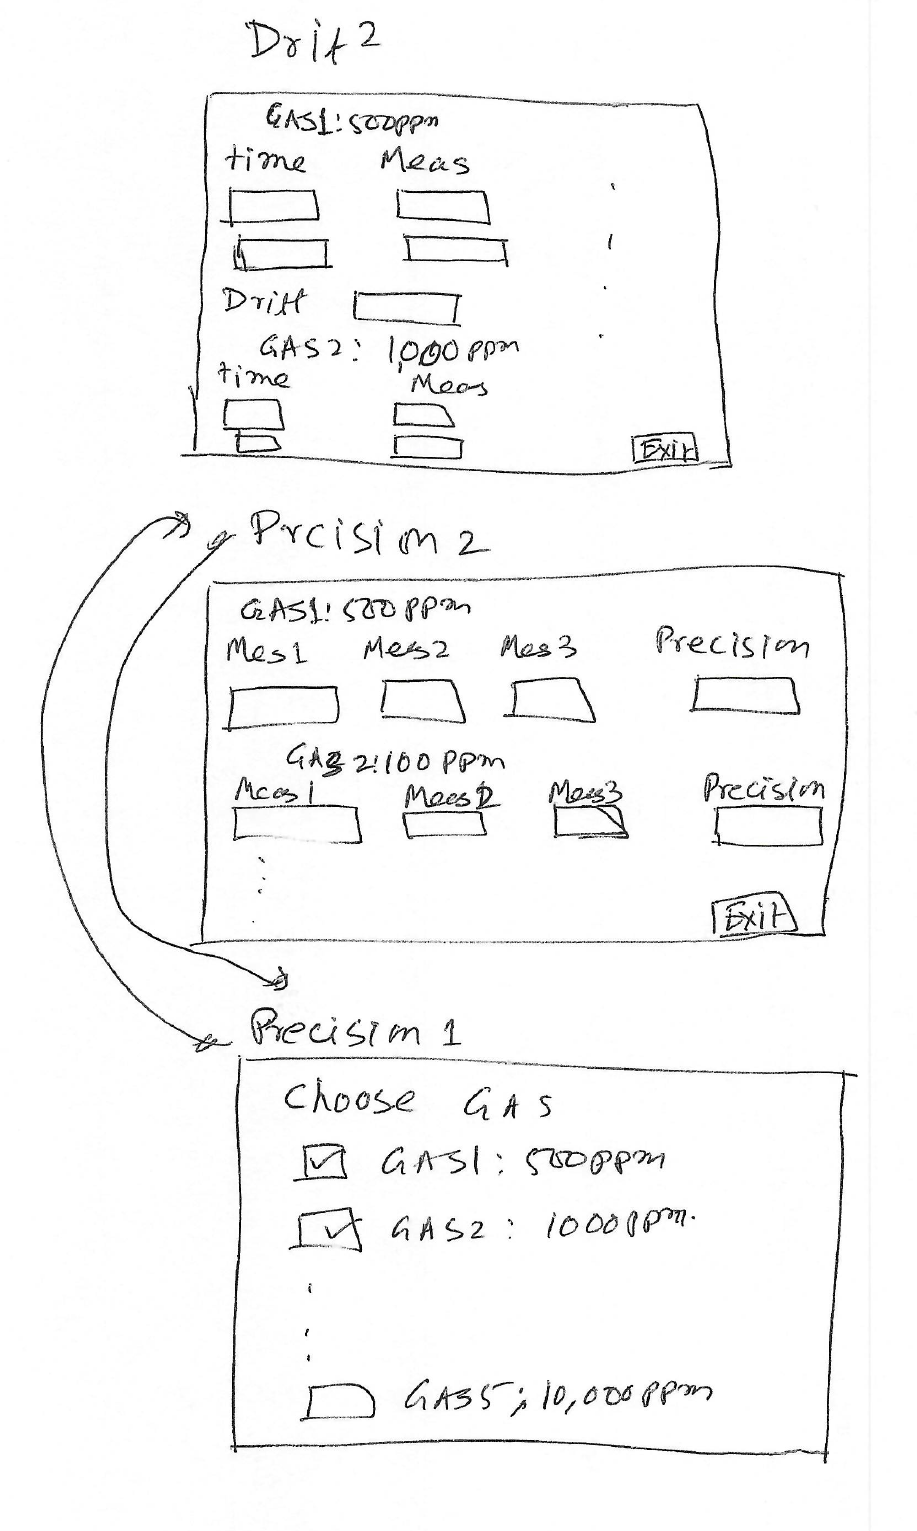 Drift 2
GAS1: 500ppm
time Meas
Drift
GAS2: 1,000 ppm
time Meas
Exit
Prcision 2
GAS1: 500 ppm
Mes1 Meas2 Mes3 Precision
GAS 2: 100 ppm
Meas1 Meas2 Meas3 Precision
Exit
Precision 1
Choose GAS
GAS1: 500ppm
GAS2: 1000ppm.
GAS5; 10,000ppm